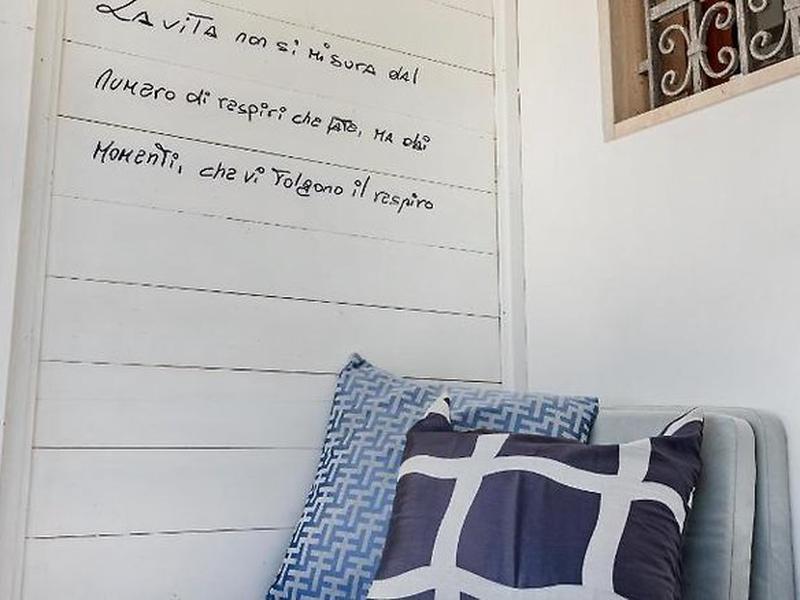 La vita non si misura dal
numero di respiri che fate, ma dai
momenti, che vi tolgono il respiro